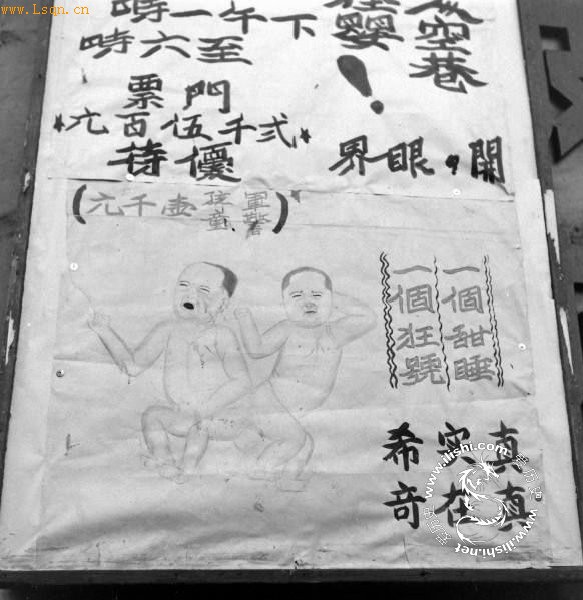 空巷
嬰！
下午一時
至六時
門票
弍千伍百元
優待
開，眼界
(軍警孩童壹千元)
一個甜睡
一個狂號
真真
实在
希奇
www.Lsqn.cn
www.ilishi.com
www.ilishi.net